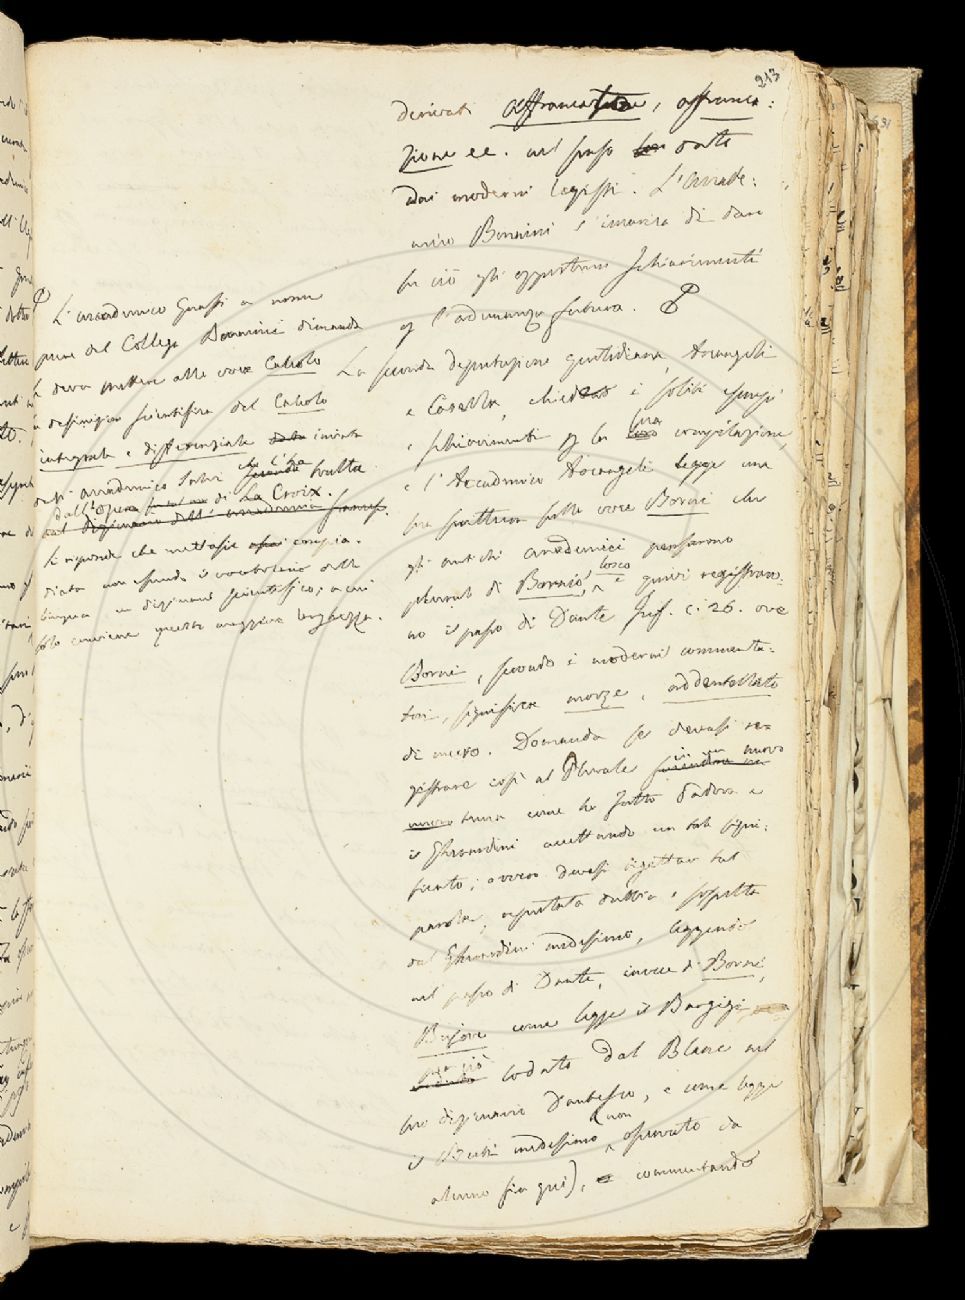 213
derivati affrancazione, affranca:
zione ec. nel senso dato
dai moderni legisti. L'Accade:
mico Bonaini s'incarica di dare
su ciò gli opportuni schiarimenti
per l'adunanza futura.
La seconda deputazione quotidiana, Arcangeli
e Casella, chiedono i soliti esempi
e schiarimenti per la sua compilazione,
e l'Accademico Arcangeli legge una
sua scrittura sulla voce Borni che
gli antichi accademici pensarono
plurale di Bornio, losco e quivi registraro:
no il passo di Dante Inf. c. 26. ove
Borni, secondo i moderni commenta:
tori, significa morse, addentellato
di muro. Domanda se devasi re=
gistrare così al Plurale in un nuovo
tema come ha fatto Padova e
il Gherardini accettando un tale signi:
ficato; ovvero devasi rigettar tal
parola, reputata dubbia e sospetta
dal Gherardini medesimo, leggendo
nel passo di Dante, invece di Borni,
Bujore come legge il Bargigi
per ciò lodato dal Blanc nel
suo dizionario Dantesco, e come legge
il Buti medesimo non osservato da
alcuno fin qui), commentando
L'accademico Grassi a nome
pure del Collega Bonaini dimanda
se deva mettere alla voce Calcolo
la definizione scientifica del Calcolo
integrale e differenziale inviata
dall'accademico che l'ha tratta
dall'Opera di La Croix.
dal dizionario dell'accademia frances.
Si risponde che mettasi compen:
diata non essendo il vocabolario della
lingua un dizionario scientifico, a cui
solo conviene questa maggiore larghezza.